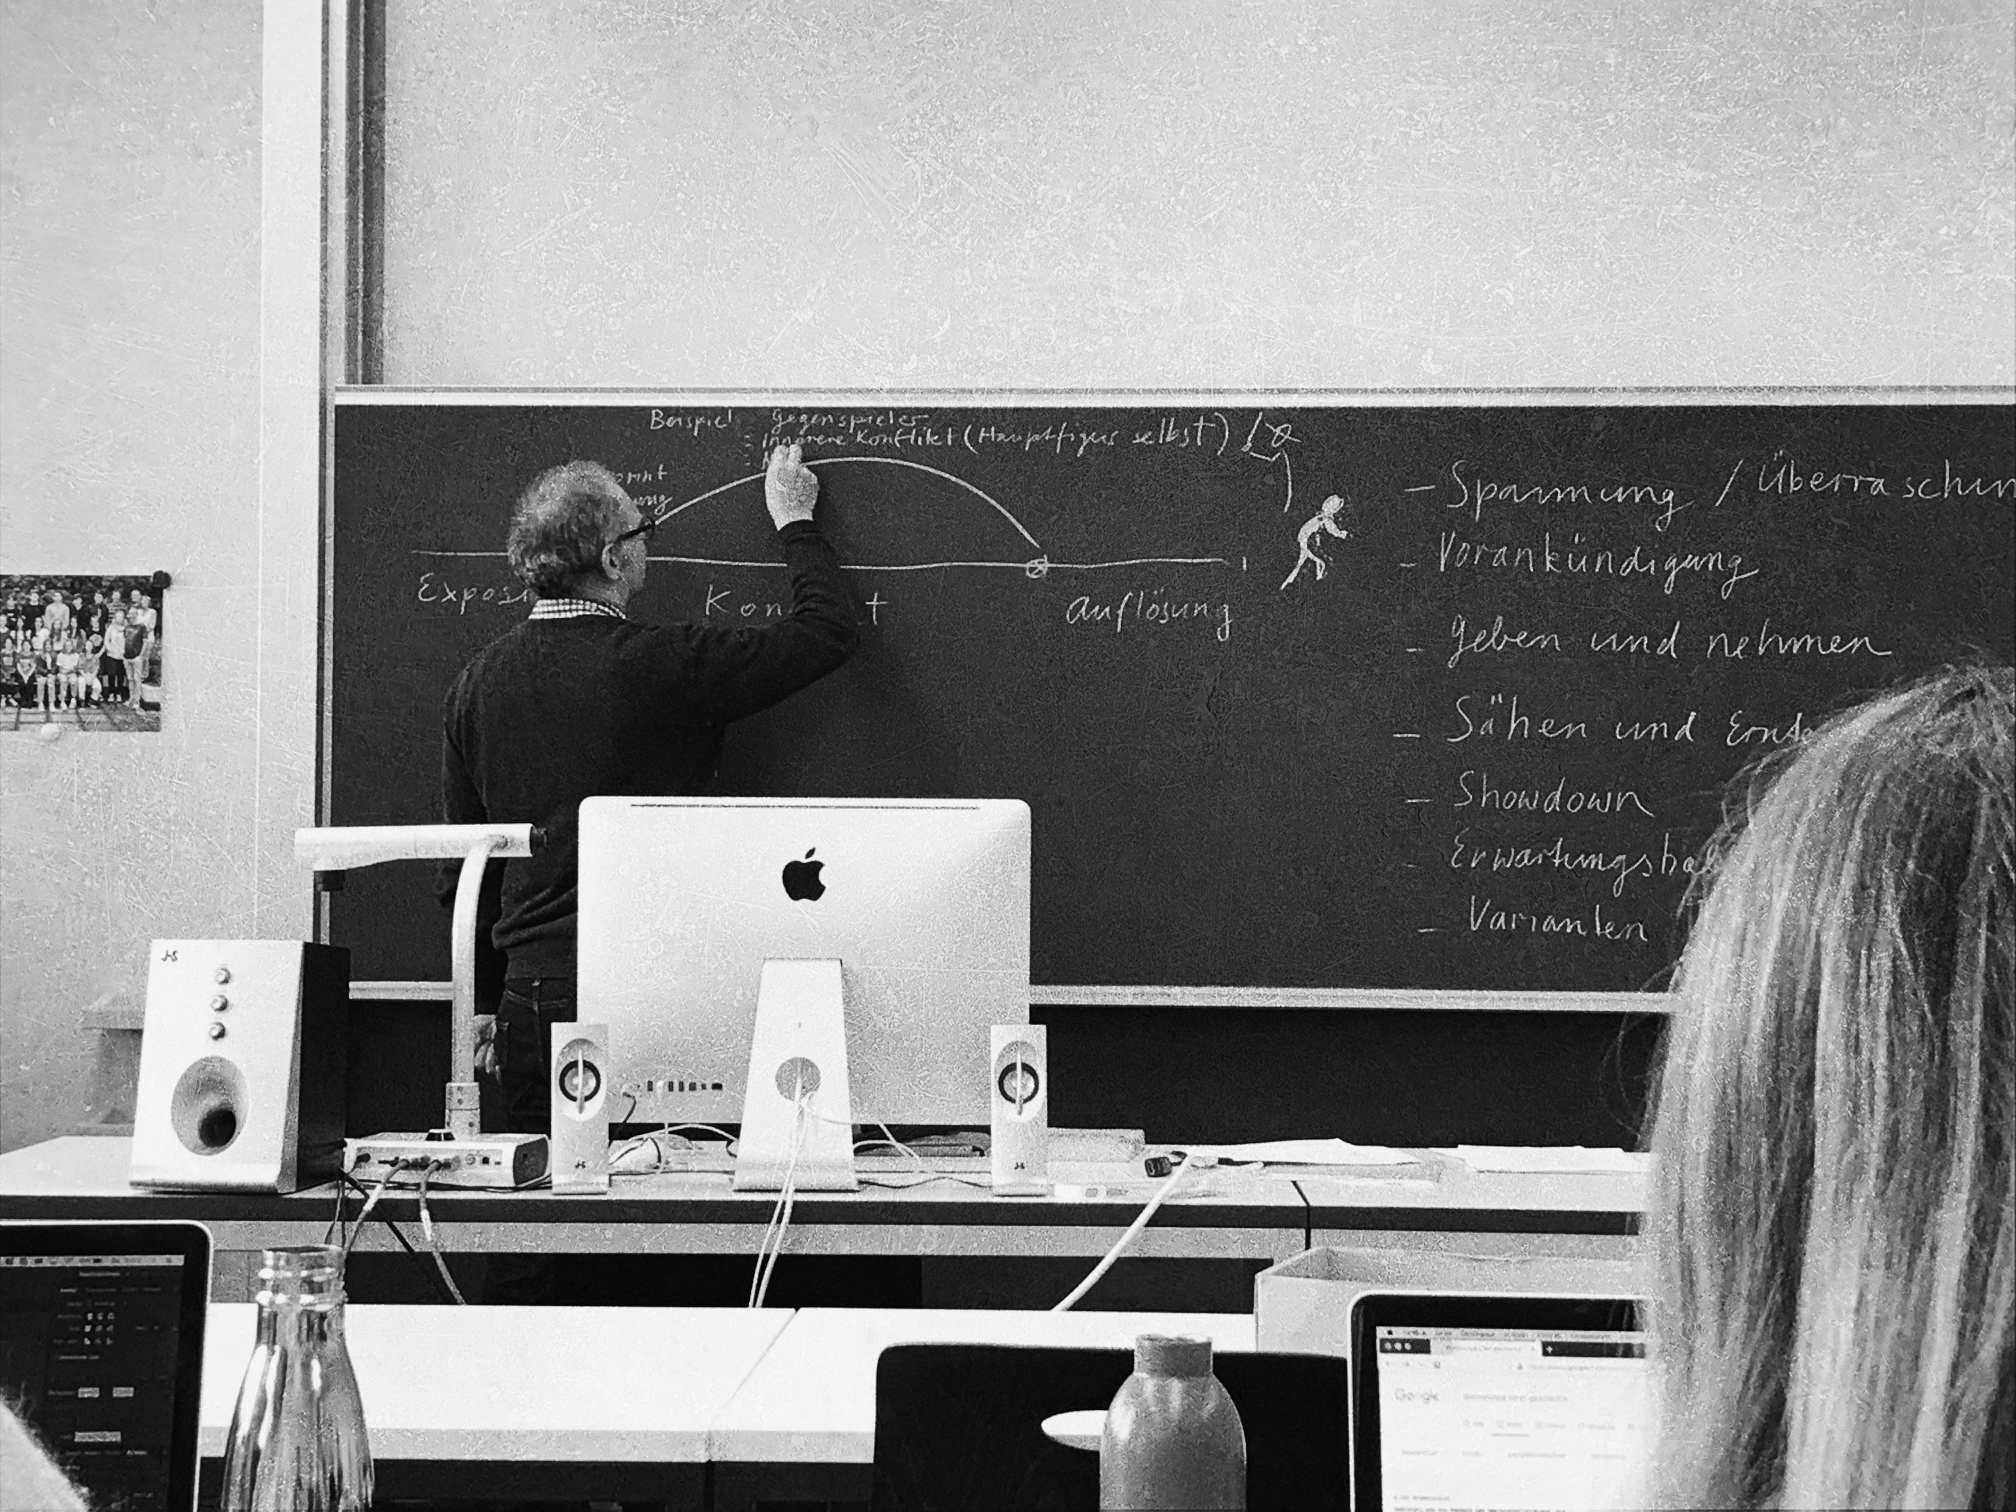 Beispiel Gegenspieler
- Innerere Konflikt (Hauptfigur selbst)
Exposi
Kon t
Auflösung
- Spannung / Überraschun
- Vorankündigung
- Geben und nehmen
- Sähen und Ernte
- Showdown
- Erwartungshal
- Varianten
J-S
J-S
J-S
Google